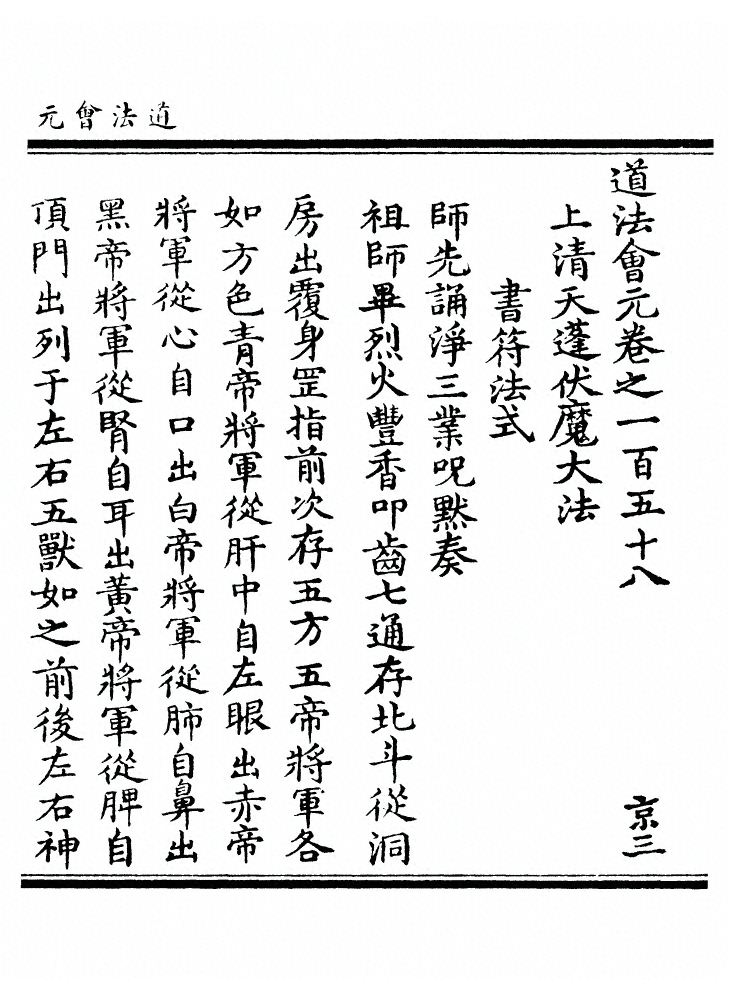 道法會元
道法會元卷之一百五十八　京三
上清天蓬伏魔大法
書符法式
師先誦淨三業呪默奏
祖師畢烈火豐香叩齒七通存北斗從洞
房出覆身罡指前次存五方五帝將軍各
如方色青帝將軍從肝中自左眼出赤帝
將軍從心自口出白帝將軍從肺自鼻出
黑帝將軍從腎自耳出黃帝將軍從脾自
頂門出列于左右五獸如之前後左右神